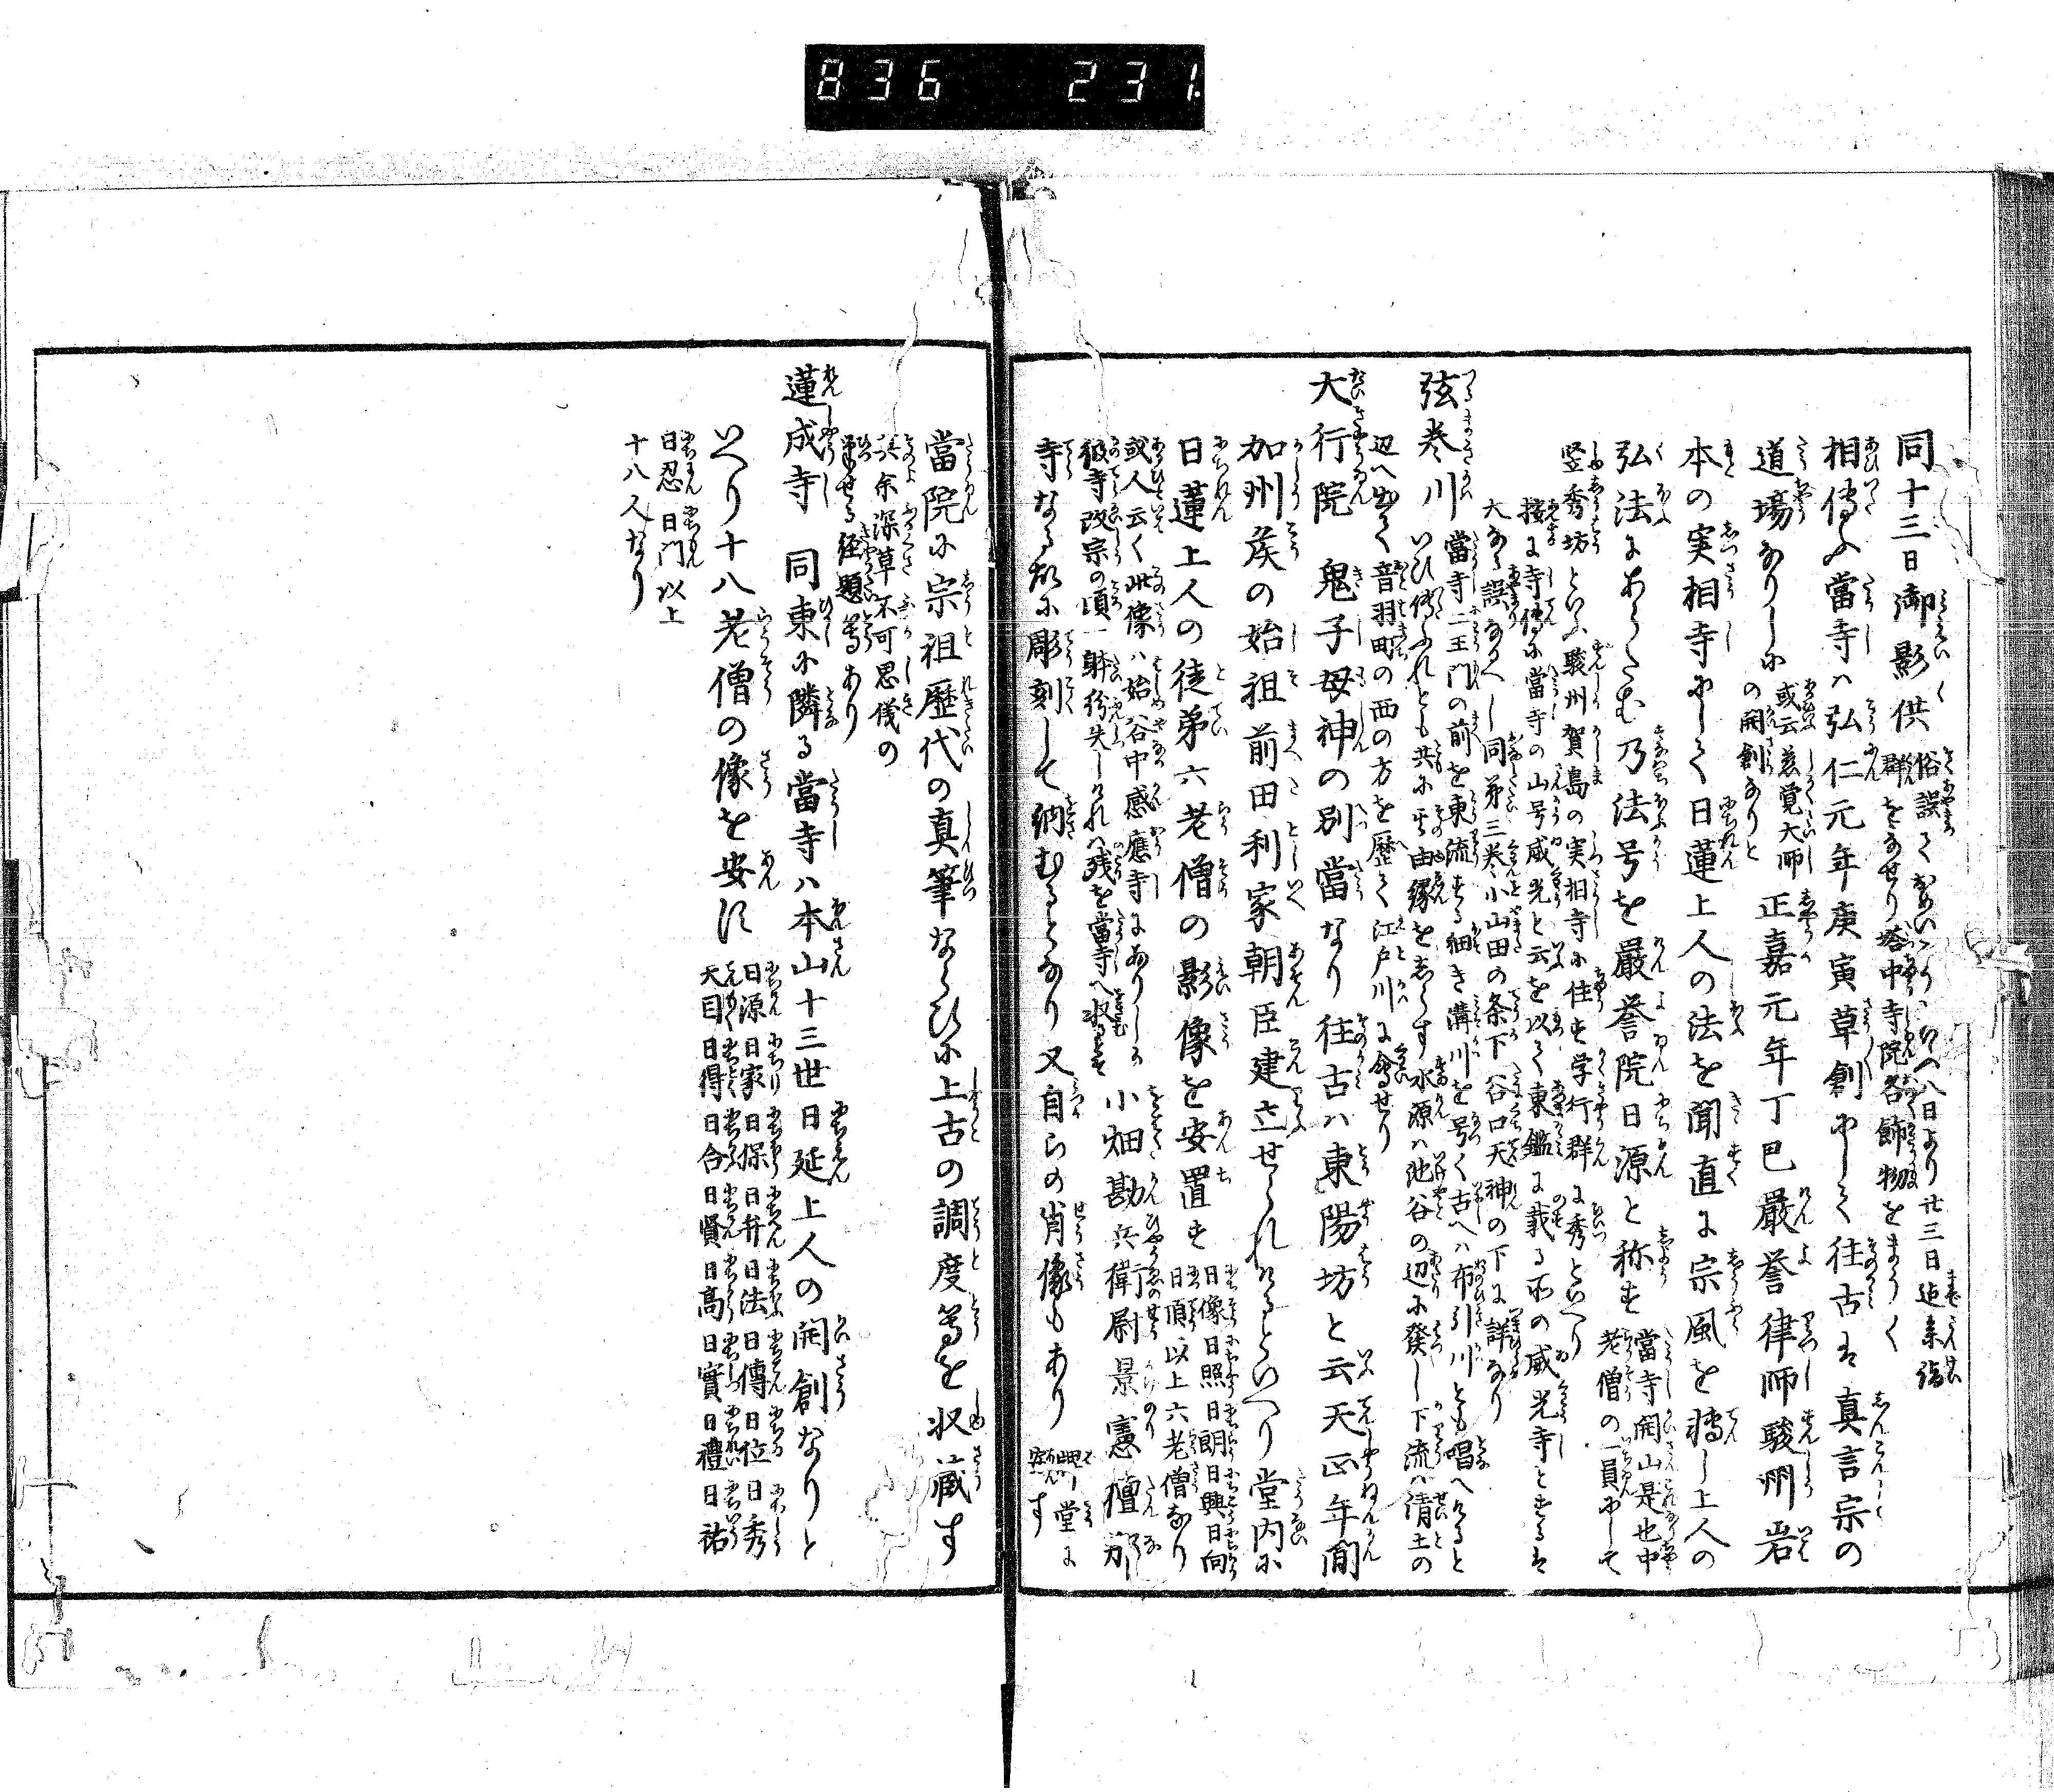 836 231.
同十三日御影供 俗誤ておめいこうといへり八日より廿三日迄参詣
群をなせり塔中寺院各飾物をまうく
相傳ふ當寺ハ弘仁元年庚寅草創にして往古は真言宗の
道場なりしに 或云慈覚大師
の開創なりと 正嘉元年丁巳嚴誉律師駿州岩
本の実相寺にして日蓮上人の法を聞直に宗風を轉し上人の
弘法にあらたむ乃法号を嚴誉院日源と称す 當寺開山是也中
老僧の一員にして
竪秀坊といふ駿州賀島の実相寺に住す学行群に秀といへり
按に寺傳に當寺の山号威光と云を以て東鑑に載る所の威光寺とするは
大なる誤なるへし同第三巻小山田の条下谷口天神の下に詳なり
弦巻川 當寺二王門の前を東流する細き溝川を号く古へハ布引川とも唱へけると
いひ傳ふれとも共に其由縁をしらす水源ハ池谷の辺に発し下流ハ清土の
辺へ出て音羽町の西の方を歴て江戸川に會せり
大行院 鬼子母神の別當なり往古ハ東陽坊と云天正年間
加州侯の始祖前田利家朝臣建立せられけるといへり堂内に
日蓮上人の徒弟六老僧の影像を安置す 日像日照日朗日興日向
日頂以上六老僧なり
或人云く此像ハ始谷中感應寺にありしか
彼寺改宗の頃一躰紛失しけれハ残を當寺へ収むと 小畑勘兵衛尉景憲檀那
寺なる故に彫刻して納むるとなり又自らの肖像もあり 堂に
す
當院に宗祖歴代の真筆ならひに上古の調度等を収蔵す
余深草不可思儀の
せる経題等あり
蓮成寺 同東に隣る當寺ハ本山十三世日延上人の開創なりと
いへり十八老僧の像を安す 日源日家日保日弁日法日傳日位日秀
天目日得日合日賢日高日實日禮日祐
日忍日門以上
十八人なり